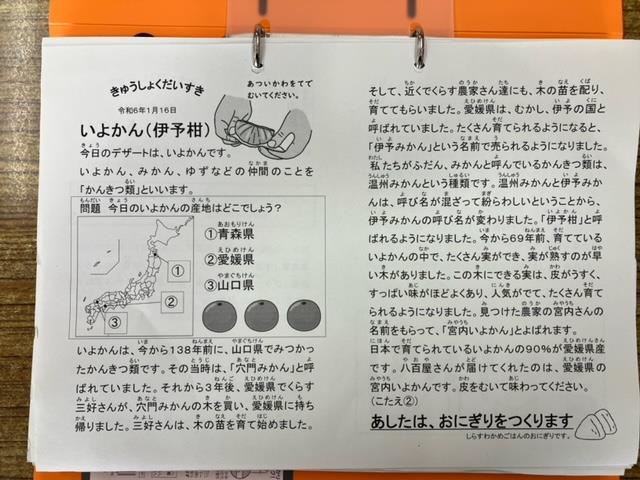 きゅうしょくだいすき
令和6年1月16日
あついかわをてで
むいてください。
いよかん(伊予柑)
今日のデザートは、いよかんです。
いよかん、みかん、ゆずなどの仲間のことを
「かんきつ類」といいます。
問題 今日のいよかんの産地はどこでしょう?
①青森県
②愛媛県
③山口県
①
②
③
いよかんは、今から138年前に、山口県でみつかっ
たかんきつ類です。その当時は、「穴門みかん」と呼
ばれていました。それから3年後、愛媛県でくらす
三好さんが、穴門みかんの木を買い、愛媛県に持ち
帰りました。三好さんは、木の苗を育て始めました。
そして、近くでくらす農家さん達にも、木の苗を配り、
育ててもらいました。愛媛県は、むかし、伊予の国と
呼ばれていました。たくさん育てられるようになると、
「伊予みかん」という名前で売られるようになりました。
私たちがふだん、みかんと呼んでいるかんきつ類は、
温州みかんという種類です。温州みかんと伊予みか
んは、呼び名が混ざって紛らわしいということから、
伊予みかんの呼び名が変わりました。「伊予柑」と呼
ばれるようになりました。今から69年前、育てている
いよかんの中で、たくさん実ができ、実が熟すのが早
い木がありました。この木にできる実は、皮がうすく、
すっぱい味がほどよくあり、人気がでて、たくさん育て
られるようになりました。見つけた農家の宮内さんの
名前をもらって、「宮内いよかん」とよばれます。
日本で育てられているいよかんの90%が愛媛県産
です。八百屋さんが届けてくれたのは、愛媛県の
宮内いよかんです。皮をむいて味わってください。
(こたえ②)
あしたは、おにぎりをつくります
しらすわかめごはんのおにぎりです。